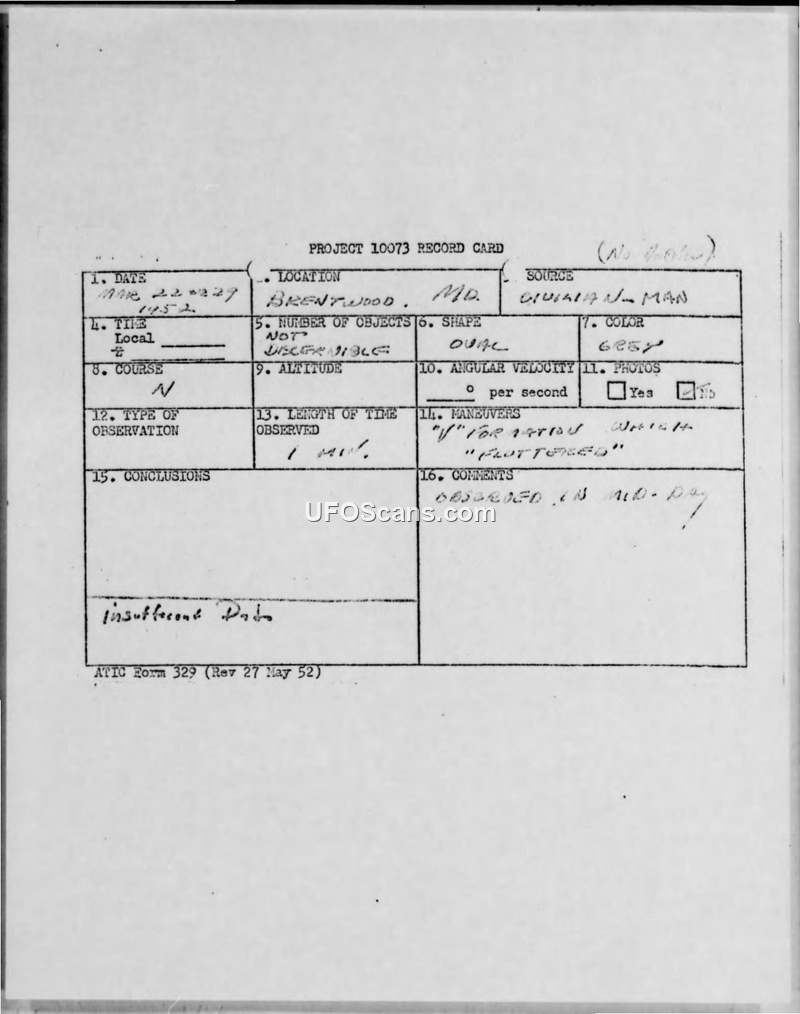 PROJECT 10073 RECORD CARD
(No
1. DATE
MAR 22 29
1952
. LOCATION
BRENTWOOD. MD.
SOURCE
CIVILIAN - MAN
4. TIME
Local
5. NUMBER OF OBJECTS
NOT
DISCERNIBLE
6. SHAPE
OVAL
7. COLOR
GREY
8. COURSE
N
9. ALTITUDE
10. ANGULAR VELOCITY
° per second
11. PHOTOS
Yes No
12. TYPE OF
OBSERVATION
13. LENGTH OF TIME
OBSERVED
1 MIN.
14. MANEUVERS
"V" FORMATION WHICH
"FLUTTERED"
15. CONCLUSIONS
Insufficient Data
16. COMMENTS
OBSERVED IN MID-DAY
ATIC Form 329 (Rev 27 May 52)
UFOScans.com